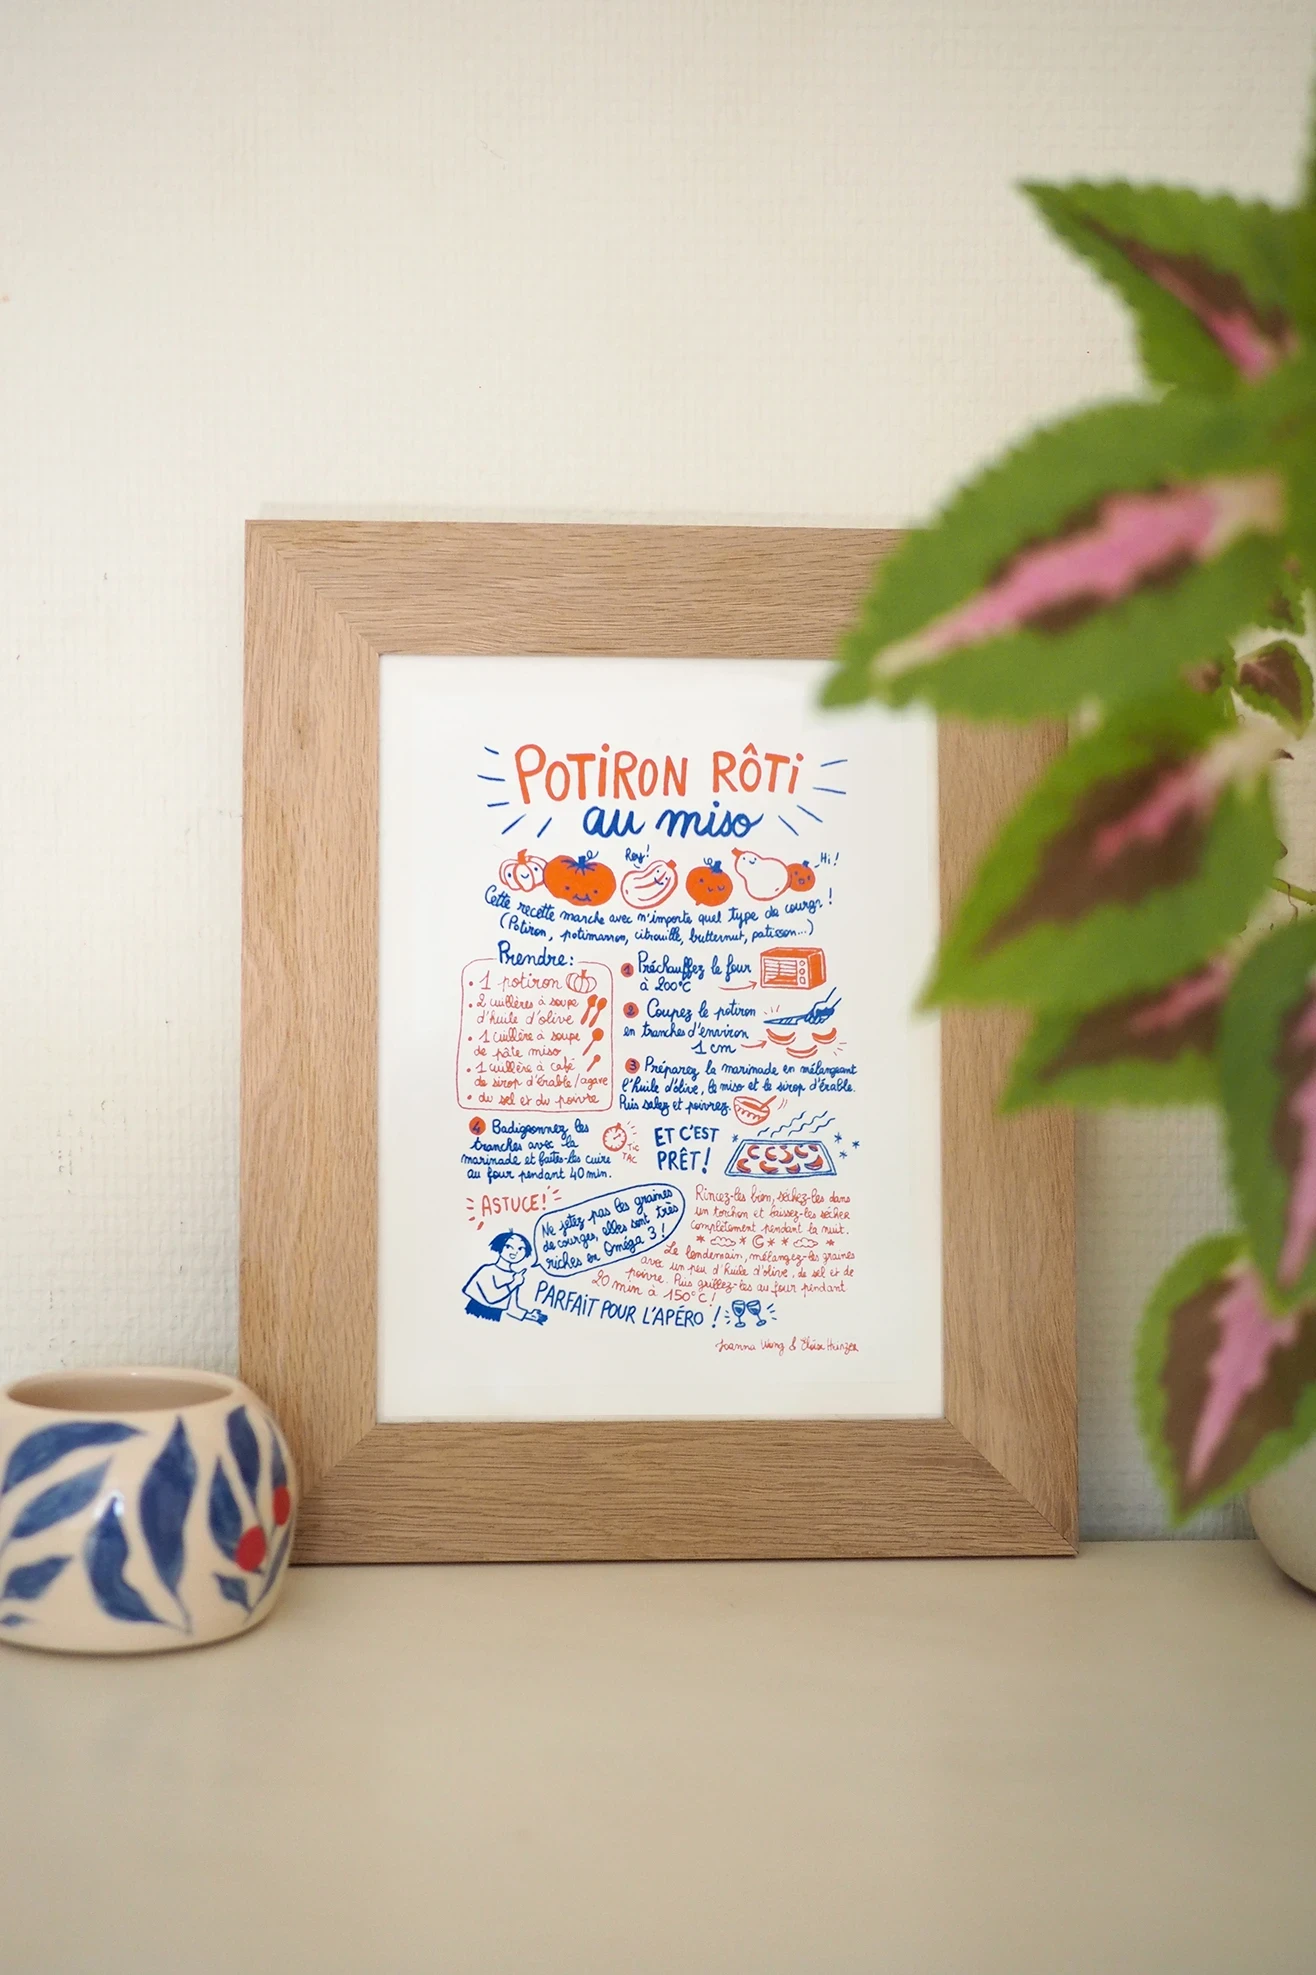 POTIRON RÔTI
au miso
Hey!
Hi!
Cette recette marche avec n'importe quel type de courge !
(Potiron, potimarron, citrouille, butternut, patisson...)
Prendre:
• 1 potiron
• 2 cuillères à soupe
d'huile d'olive
• 1 cuillère à soupe
de pâte miso
• 1 cuillère à café
de sirop d'érable/agave
• du sel et du poivre
1 Préchauffez le four
à 200°C
2 Coupez le potiron
en tranches d'environ
1 cm
3 Préparez la marinade en mélangeant
l'huile d'olive, le miso et le sirop d'érable.
Puis salez et poivrez.
4 Badigeonnez les
tranches avec la
marinade et faites-les cuire
au four pendant 40 min.
TIC
TAC
ET C'EST
PRÊT!
ASTUCE!
Ne jetez pas les graines
de courges, elles sont très
riches en Oméga 3 !
Rincez-les bien, séchez-les dans
un torchon et laissez-les sécher
complètement pendant la nuit.
Le lendemain, mélangez-les graines
avec un peu d'huile d'olive, de sel et de
poivre. Puis grillez-les au four pendant
20 min à 150°C!
PARFAIT POUR L'APÉRO !
Joanna Wong &